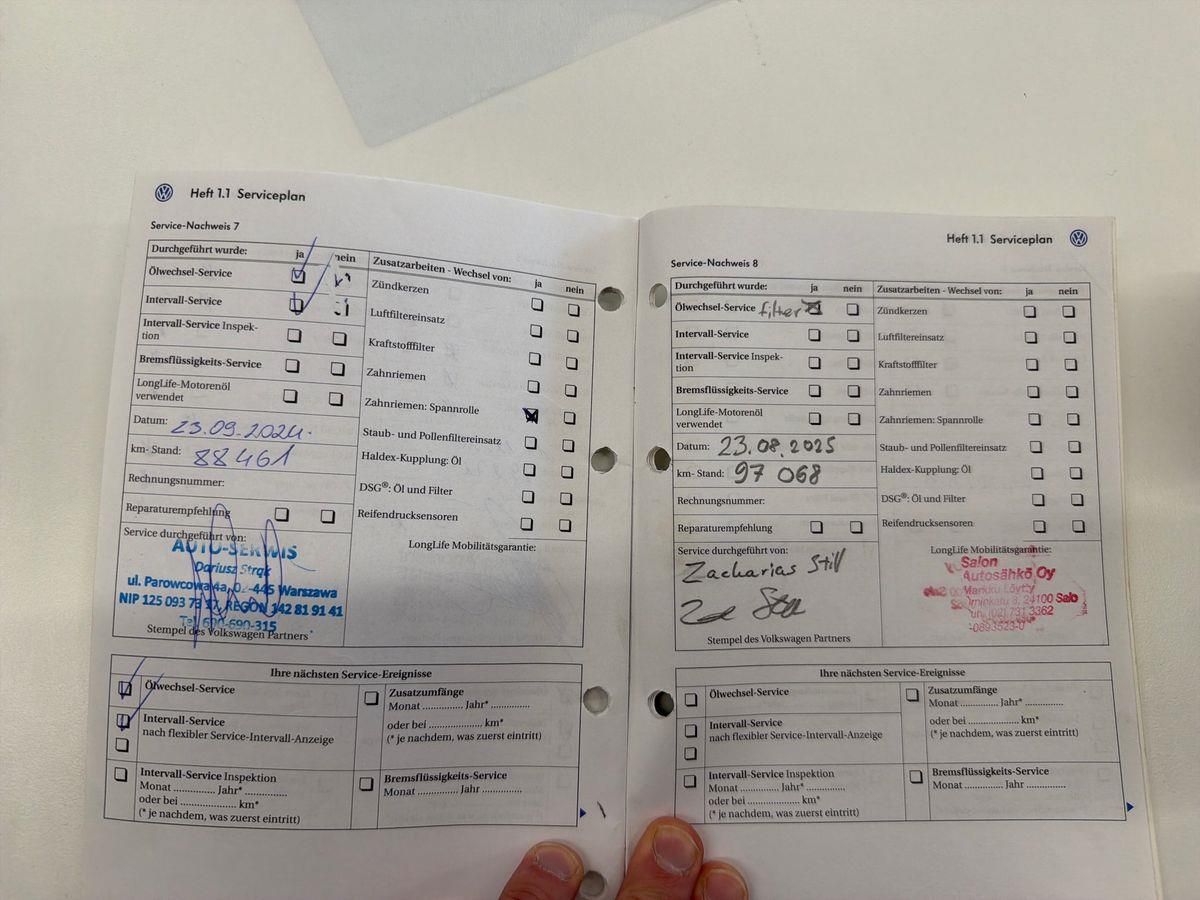 Heft 1.1 Serviceplan
Service-Nachweis 7
Durchgeführt wurde: ja nein
Ölwechsel-Service
Intervall-Service
Intervall-Service Inspek-
tion
Bremsflüssigkeits-Service
LongLife-Motorenöl
verwendet
Datum: 23.09.2024.
km- Stand: 88461
Rechnungsnummer:
Reparaturempfehlung
Service durchgeführt von:
AUTO-SERWIS
Dariusz Strąk
ul. Parowcowa 4a, 02-445 Warszawa
NIP 125 093 73 17, REGON 142 81 91 41
Tel. 600-690-315
Stempel des Volkswagen Partners
Zusatzarbeiten - Wechsel von: ja nein
Zündkerzen
Luftfiltereinsatz
Kraftstofffilter
Zahnriemen
Zahnriemen: Spannrolle
Staub- und Pollenfiltereinsatz
Haldex-Kupplung: Öl
DSG®: Öl und Filter
Reifendrucksensoren
LongLife Mobilitätsgarantie:
Ihre nächsten Service-Ereignisse
Ölwechsel-Service
Intervall-Service
nach flexibler Service-Intervall-Anzeige
Intervall-Service Inspektion
Monat .............. Jahr* ..............
oder bei .................... km*
(* je nachdem, was zuerst eintritt)
Zusatzumfänge
Monat .............. Jahr* ..............
oder bei .................... km*
(* je nachdem, was zuerst eintritt)
Bremsflüssigkeits-Service
Monat .............. Jahr ..............
Heft 1.1 Serviceplan
Service-Nachweis 8
Durchgeführt wurde: ja nein
Ölwechsel-Service filter
Intervall-Service
Intervall-Service Inspek-
tion
Bremsflüssigkeits-Service
LongLife-Motorenöl
verwendet
Datum: 23.08.2025
km- Stand: 97 068
Rechnungsnummer:
Reparaturempfehlung
Service durchgeführt von:
Zacharias Still
Stempel des Volkswagen Partners
Zusatzarbeiten - Wechsel von: ja nein
Zündkerzen
Luftfiltereinsatz
Kraftstofffilter
Zahnriemen
Zahnriemen: Spannrolle
Staub- und Pollenfiltereinsatz
Haldex-Kupplung: Öl
DSG®: Öl und Filter
Reifendrucksensoren
LongLife Mobilitätsgarantie:
Salon
Autosähkö Oy
Markku Löytty
24100 Salo
(02) 731 3362
-0893523-0
Ihre nächsten Service-Ereignisse
Ölwechsel-Service
Intervall-Service
nach flexibler Service-Intervall-Anzeige
Intervall-Service Inspektion
Monat .............. Jahr* ..............
oder bei .................... km*
(* je nachdem, was zuerst eintritt)
Zusatzumfänge
Monat .............. Jahr* ..............
oder bei .................... km*
(* je nachdem, was zuerst eintritt)
Bremsflüssigkeits-Service
Monat .............. Jahr ..............